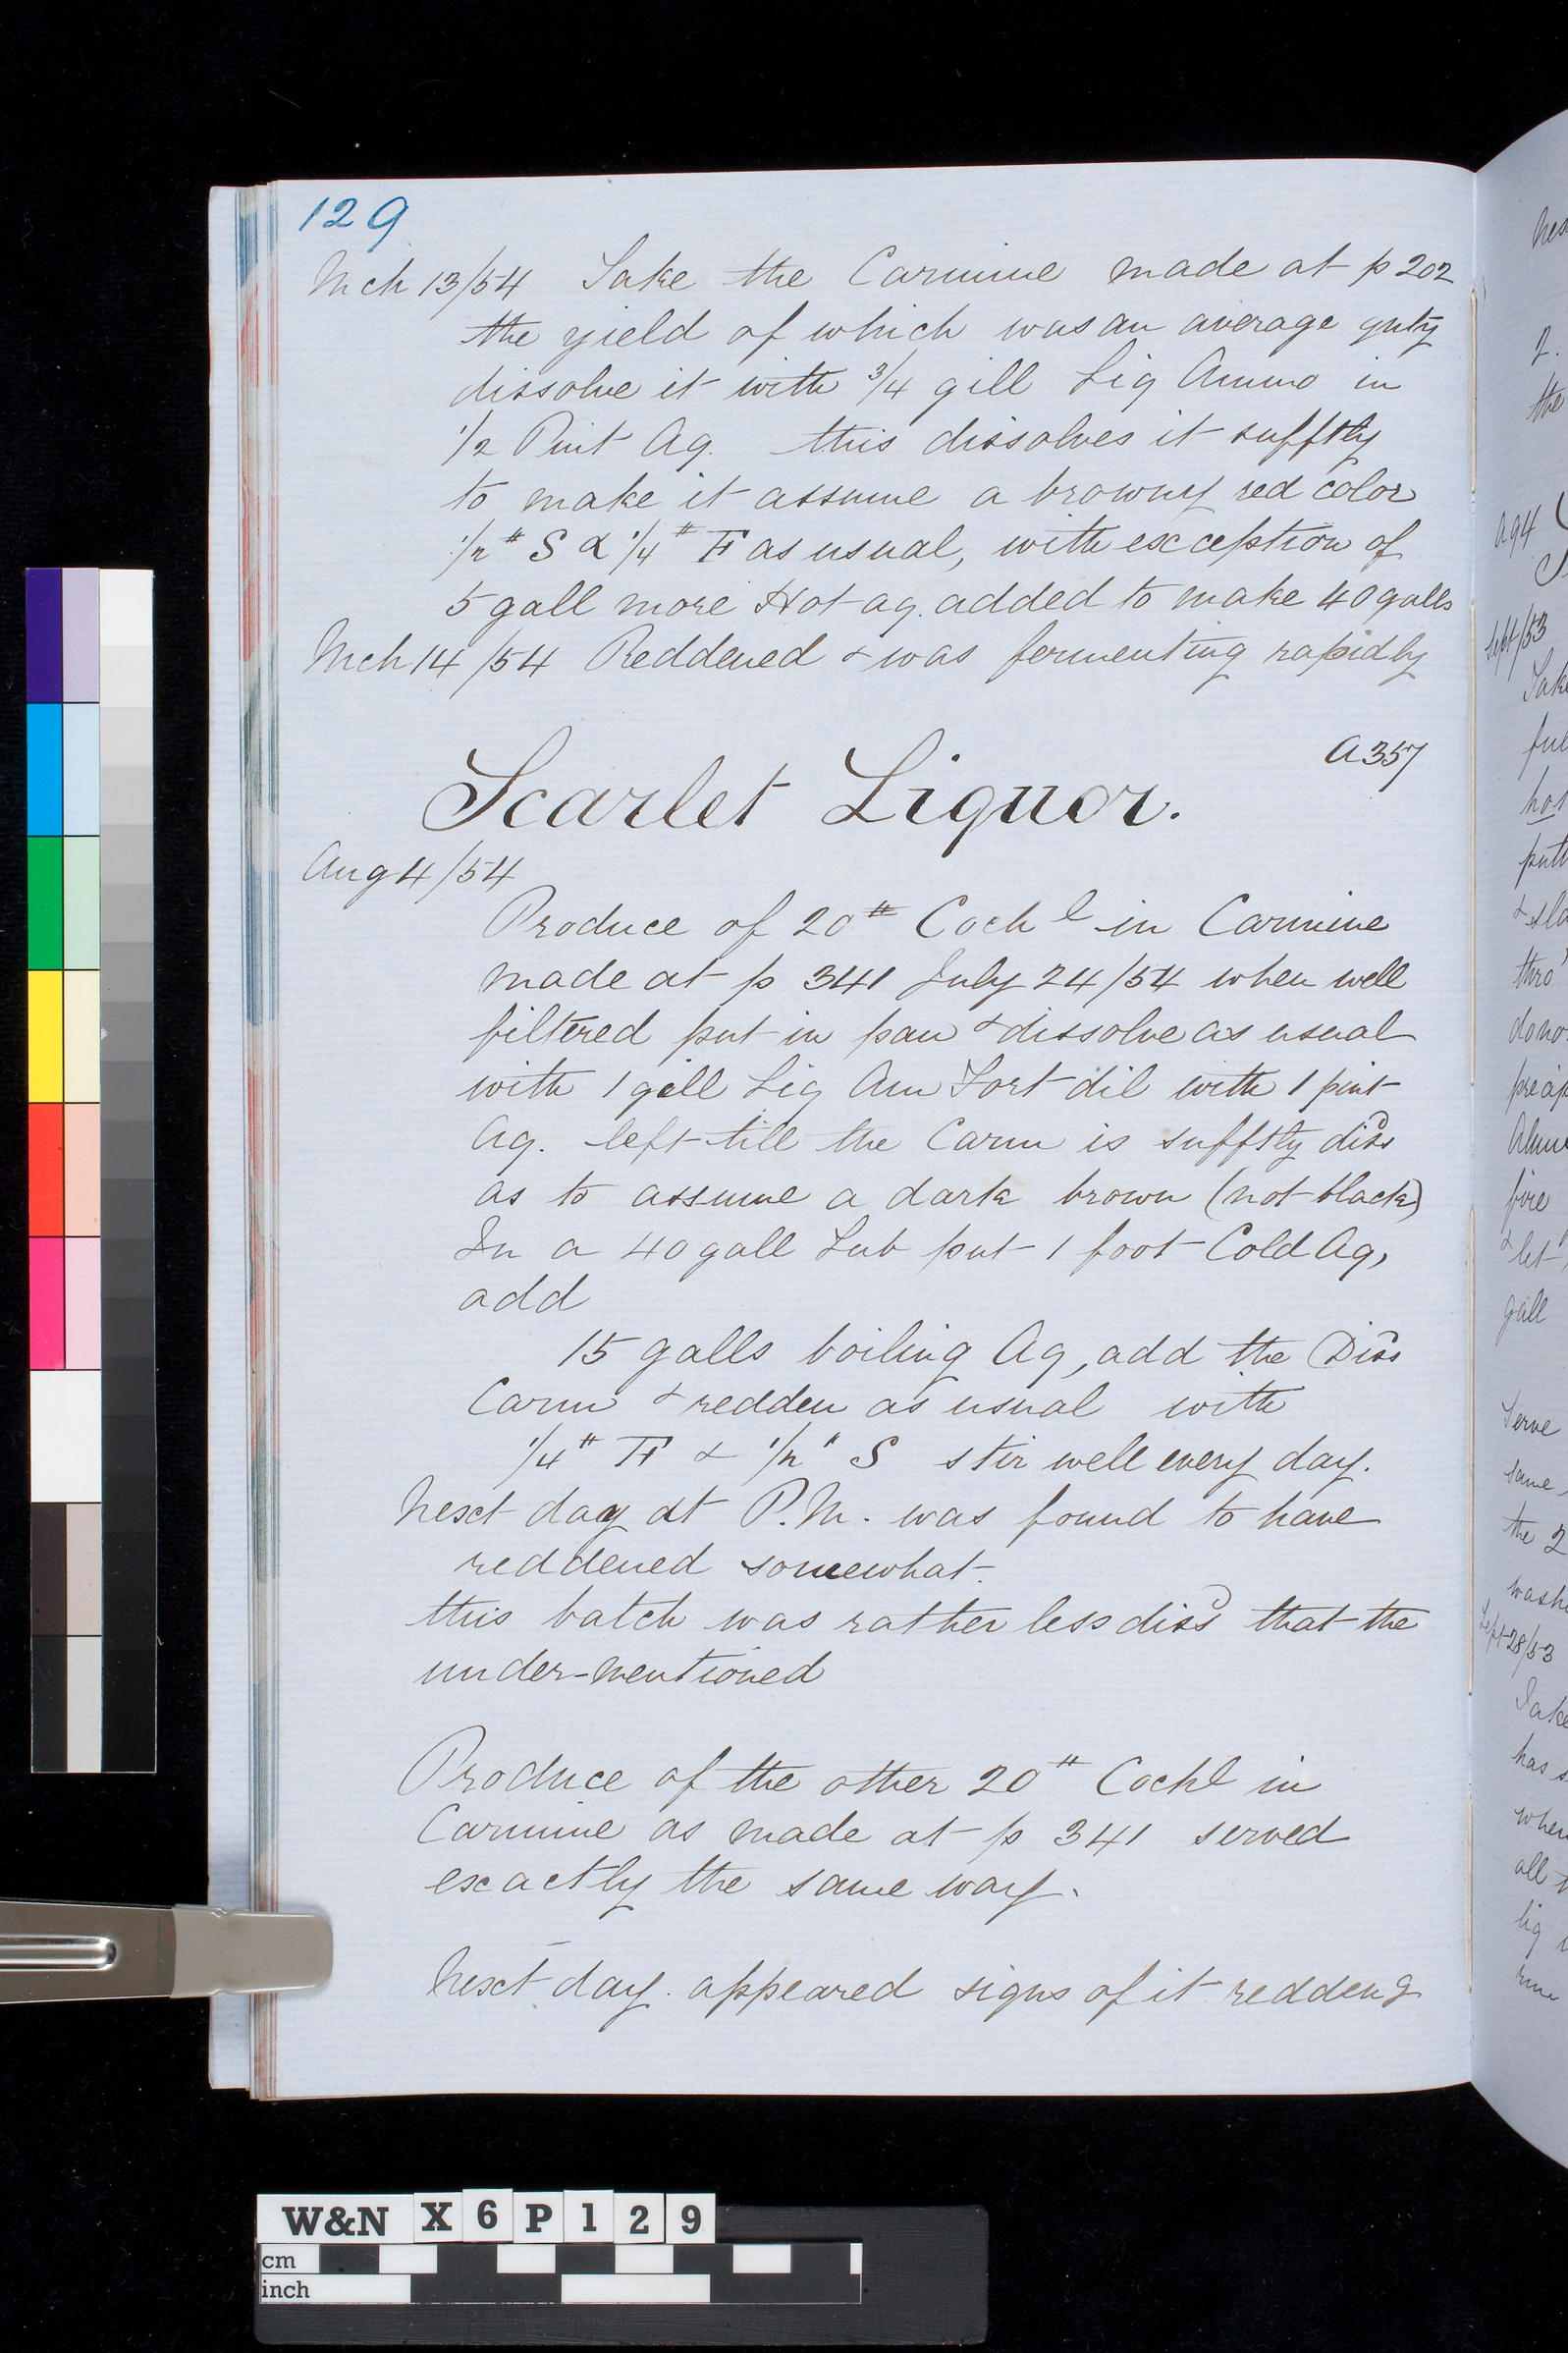 129
Mch 13/54 Take the Carmine made at p 202
the yield of which was an average qnty
dissolve it with 3/4 gill Liq Ammo in
1/2 Pint Aq. this dissolves it sufftly
to make it assume a browny red color
1/2 # S & 1/4 # F as usual, with exception of
5 gall more Hot aq. added to make 40 galls
Mch 14/54 Reddened & was fermenting rapidly
A357
Scarlet Liquor.
Aug 4/54
Produce of 20 # Cochl in Carmine
made at p 341 July 24/54 when well
filtered put in pan & dissolve as usual
with 1 gill Liq Am Fort dil with 1 pint
Aq. left till the Carm is sufftly diss
as to assume a dark brown (not black)
In a 40 gall Tub put 1 foot Cold Aq,
add
15 galls boiling Aq, add the Diss
Carm & redden as usual with
1/4 # F & 1/2 " S stir well every day.
Next day at P.M. was found to have
reddened somewhat.
this batch was rather less diss that the
under-mentioned
Produce of the other 20 # Cochl in
Carmine as made at p 341 served
exactly the same way.
Next day. appeared signs of it reddeng
hes
2.
the
Aq 4
Sept/53
Take
ful
hot
putt
& sla
thro'
do no
precip
Alum
fire
& let
gall
Serve
same,
the 2
wash
Sept 28/53
Take
has s
when
all
liq
W&N X6P129
cm
inch